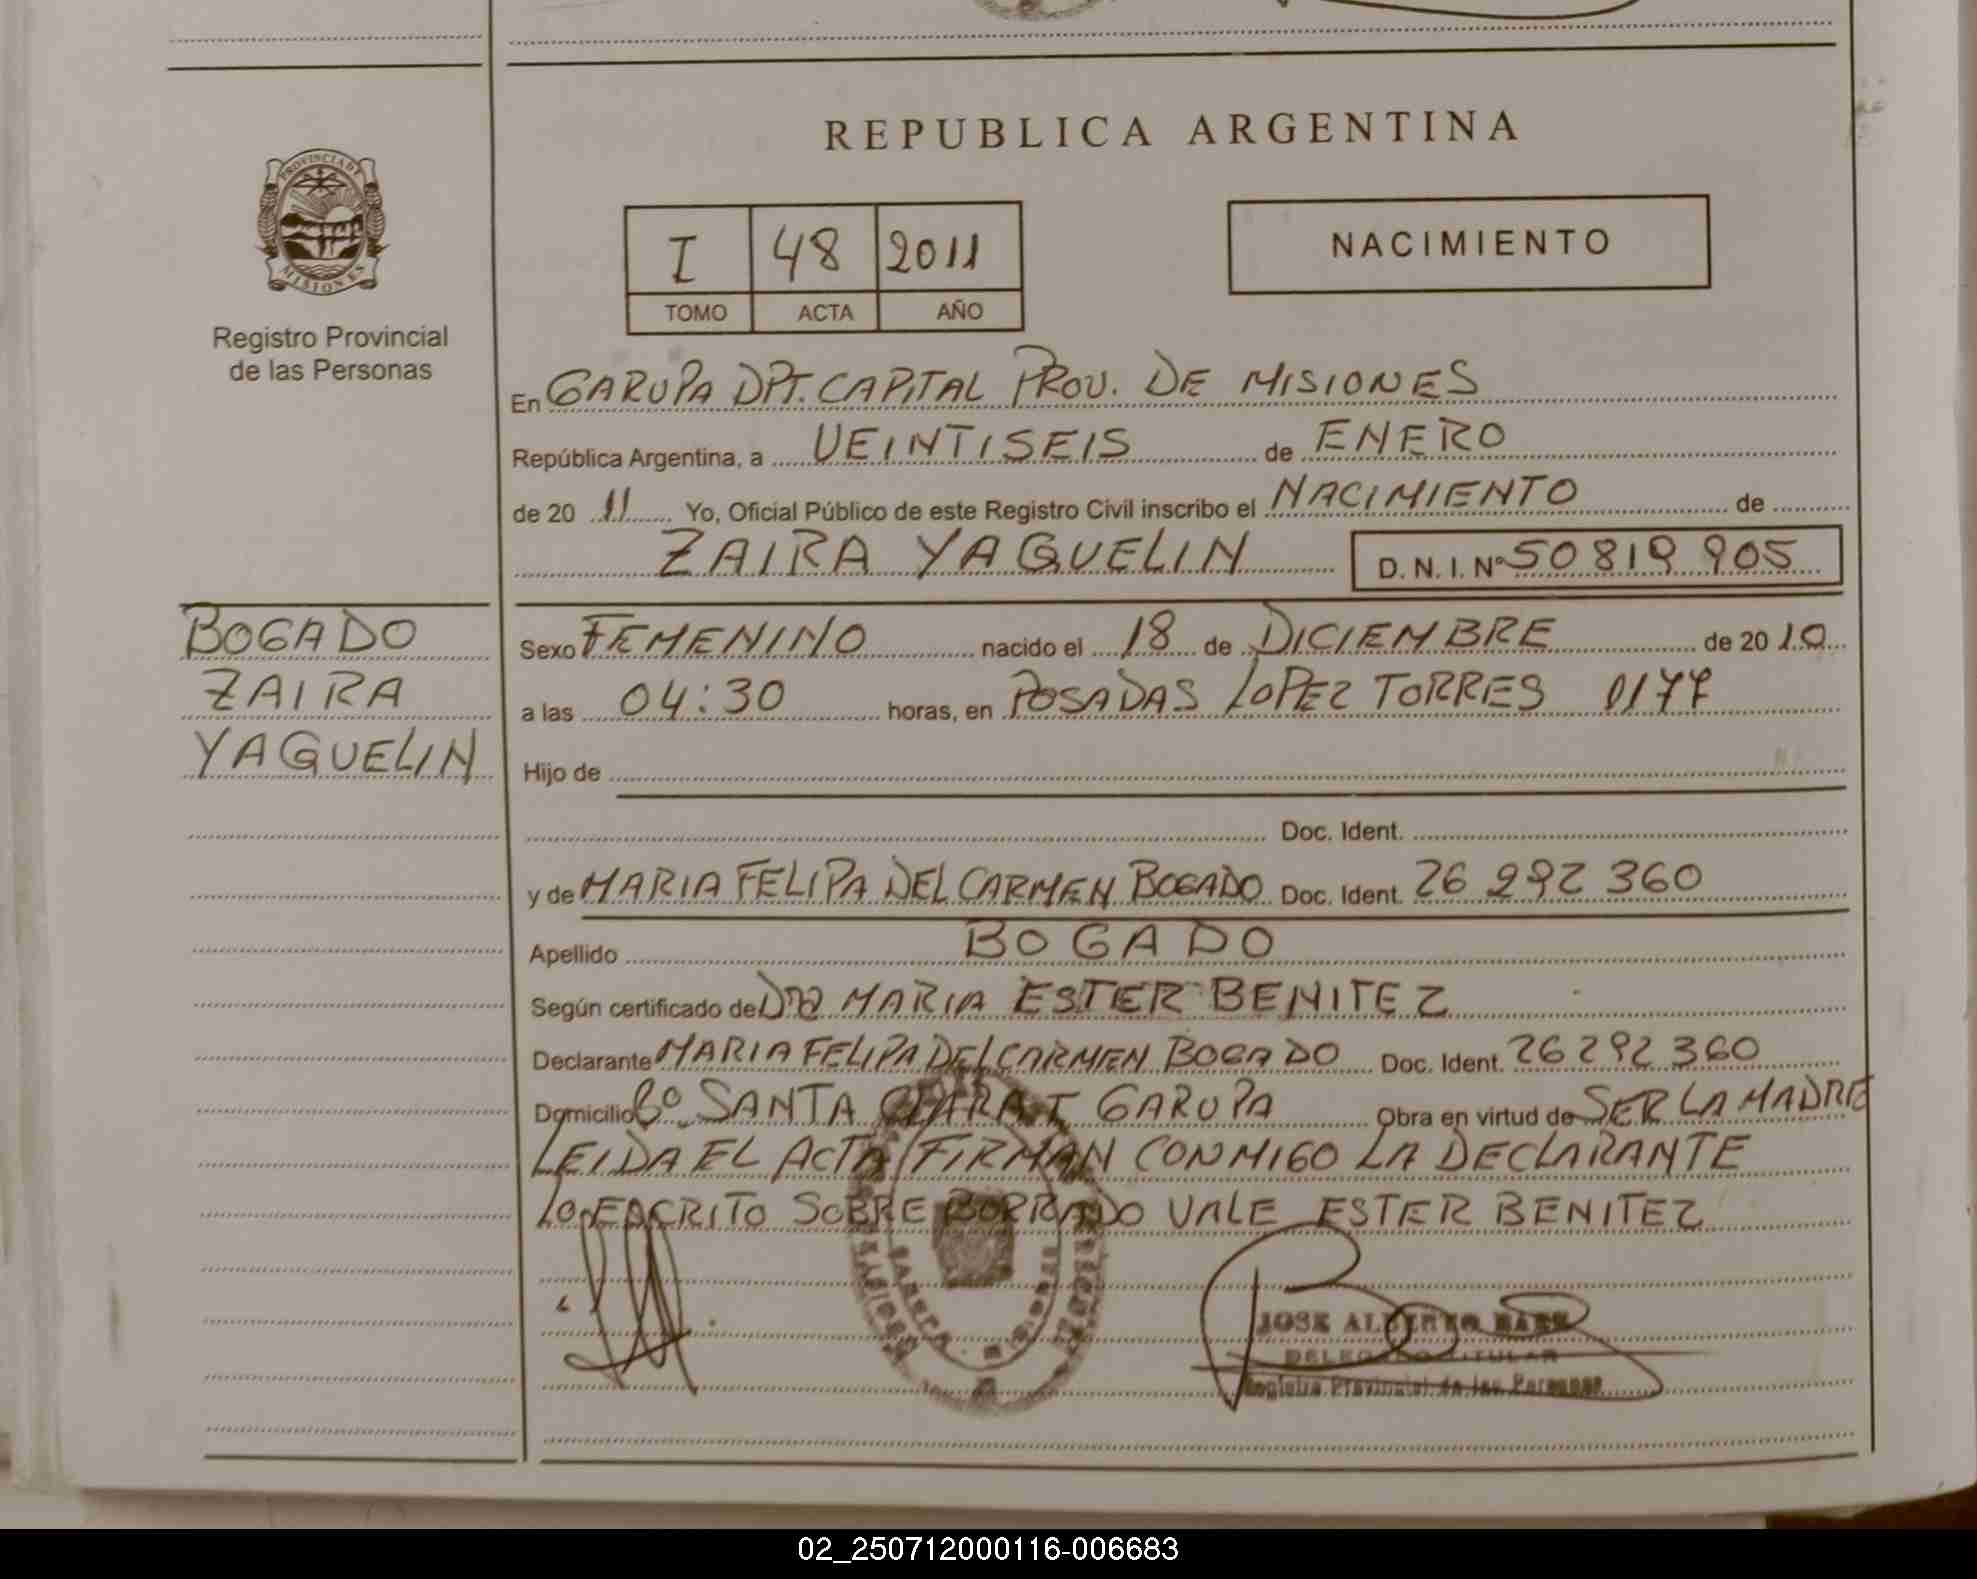 REPUBLICA ARGENTINA
PROVINCIA DE MISIONES
Registro Provincial
de las Personas
I 48 2011
TOMO ACTA AÑO
NACIMIENTO
En GARUPA DPT. CAPITAL PROV. DE MISIONES
República Argentina, a VEINTISEIS de ENERO
de 20 11 Yo, Oficial Público de este Registro Civil inscribo el NACIMIENTO de
ZAIRA YAQUELIN D.N.I. Nº 50819905
BOGADO
ZAIRA
YAQUELIN
Sexo FEMENINO nacido el 18 de DICIEMBRE de 20 10
a las 04:30 horas, en POSADAS LOPEZ TORRES 0177
Hijo de
Doc. Ident.
y de MARIA FELIPA DEL CARMEN BOGADO Doc. Ident. 26 292 360
Apellido BOGADO
Según certificado de Dra MARIA ESTER BENITEZ
Declarante MARIA FELIPA DEL CARMEN BOGADO Doc. Ident. 26292360
Domicilio Bº SANTA CLARA I GARUPA Obra en virtud de SER LA MADRE
LEIDA EL ACTA FIRMAN CONMIGO LA DECLARANTE
LO ESCRITO SOBRE BORRADO VALE ESTER BENITEZ
JOSE ALBERTO BAEZ
DELEGADO TITULAR
Registro Provincial de las Personas
02_250712000116-006683